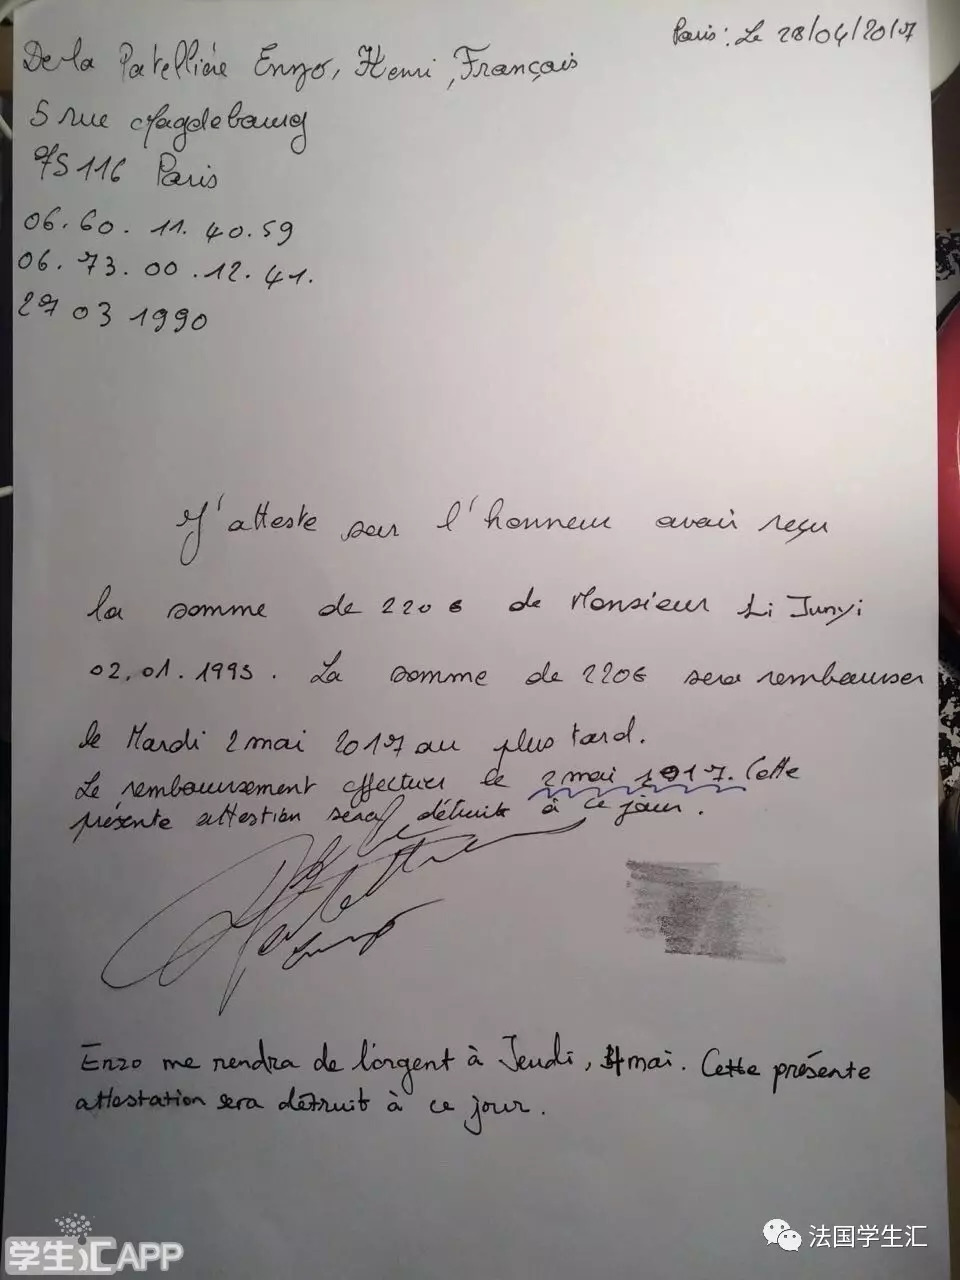 Paris : Le 28/04/2017
De la Patellière Enzo, Henri, François
5 rue Magdebourg
75116 Paris
06.60.11.40.59
06.73.00.12.41.
27 03 1990
J'atteste sur l'honneur avoir reçu
la somme de 220€ de Monsieur Li Junyi
02.01.1993. La somme de 220€ sera rembourser
le Mardi 2 mai 2017 au plus tard.
Le remboursement effectuer le 2 mai 1917. Cette
présente attestion sera détruit à ce jour.
Enzo me rendra de l'argent à Jeudi, 4 mai. Cette présente
attestation sera détruit à ce jour.
学生汇APP
法国学生汇